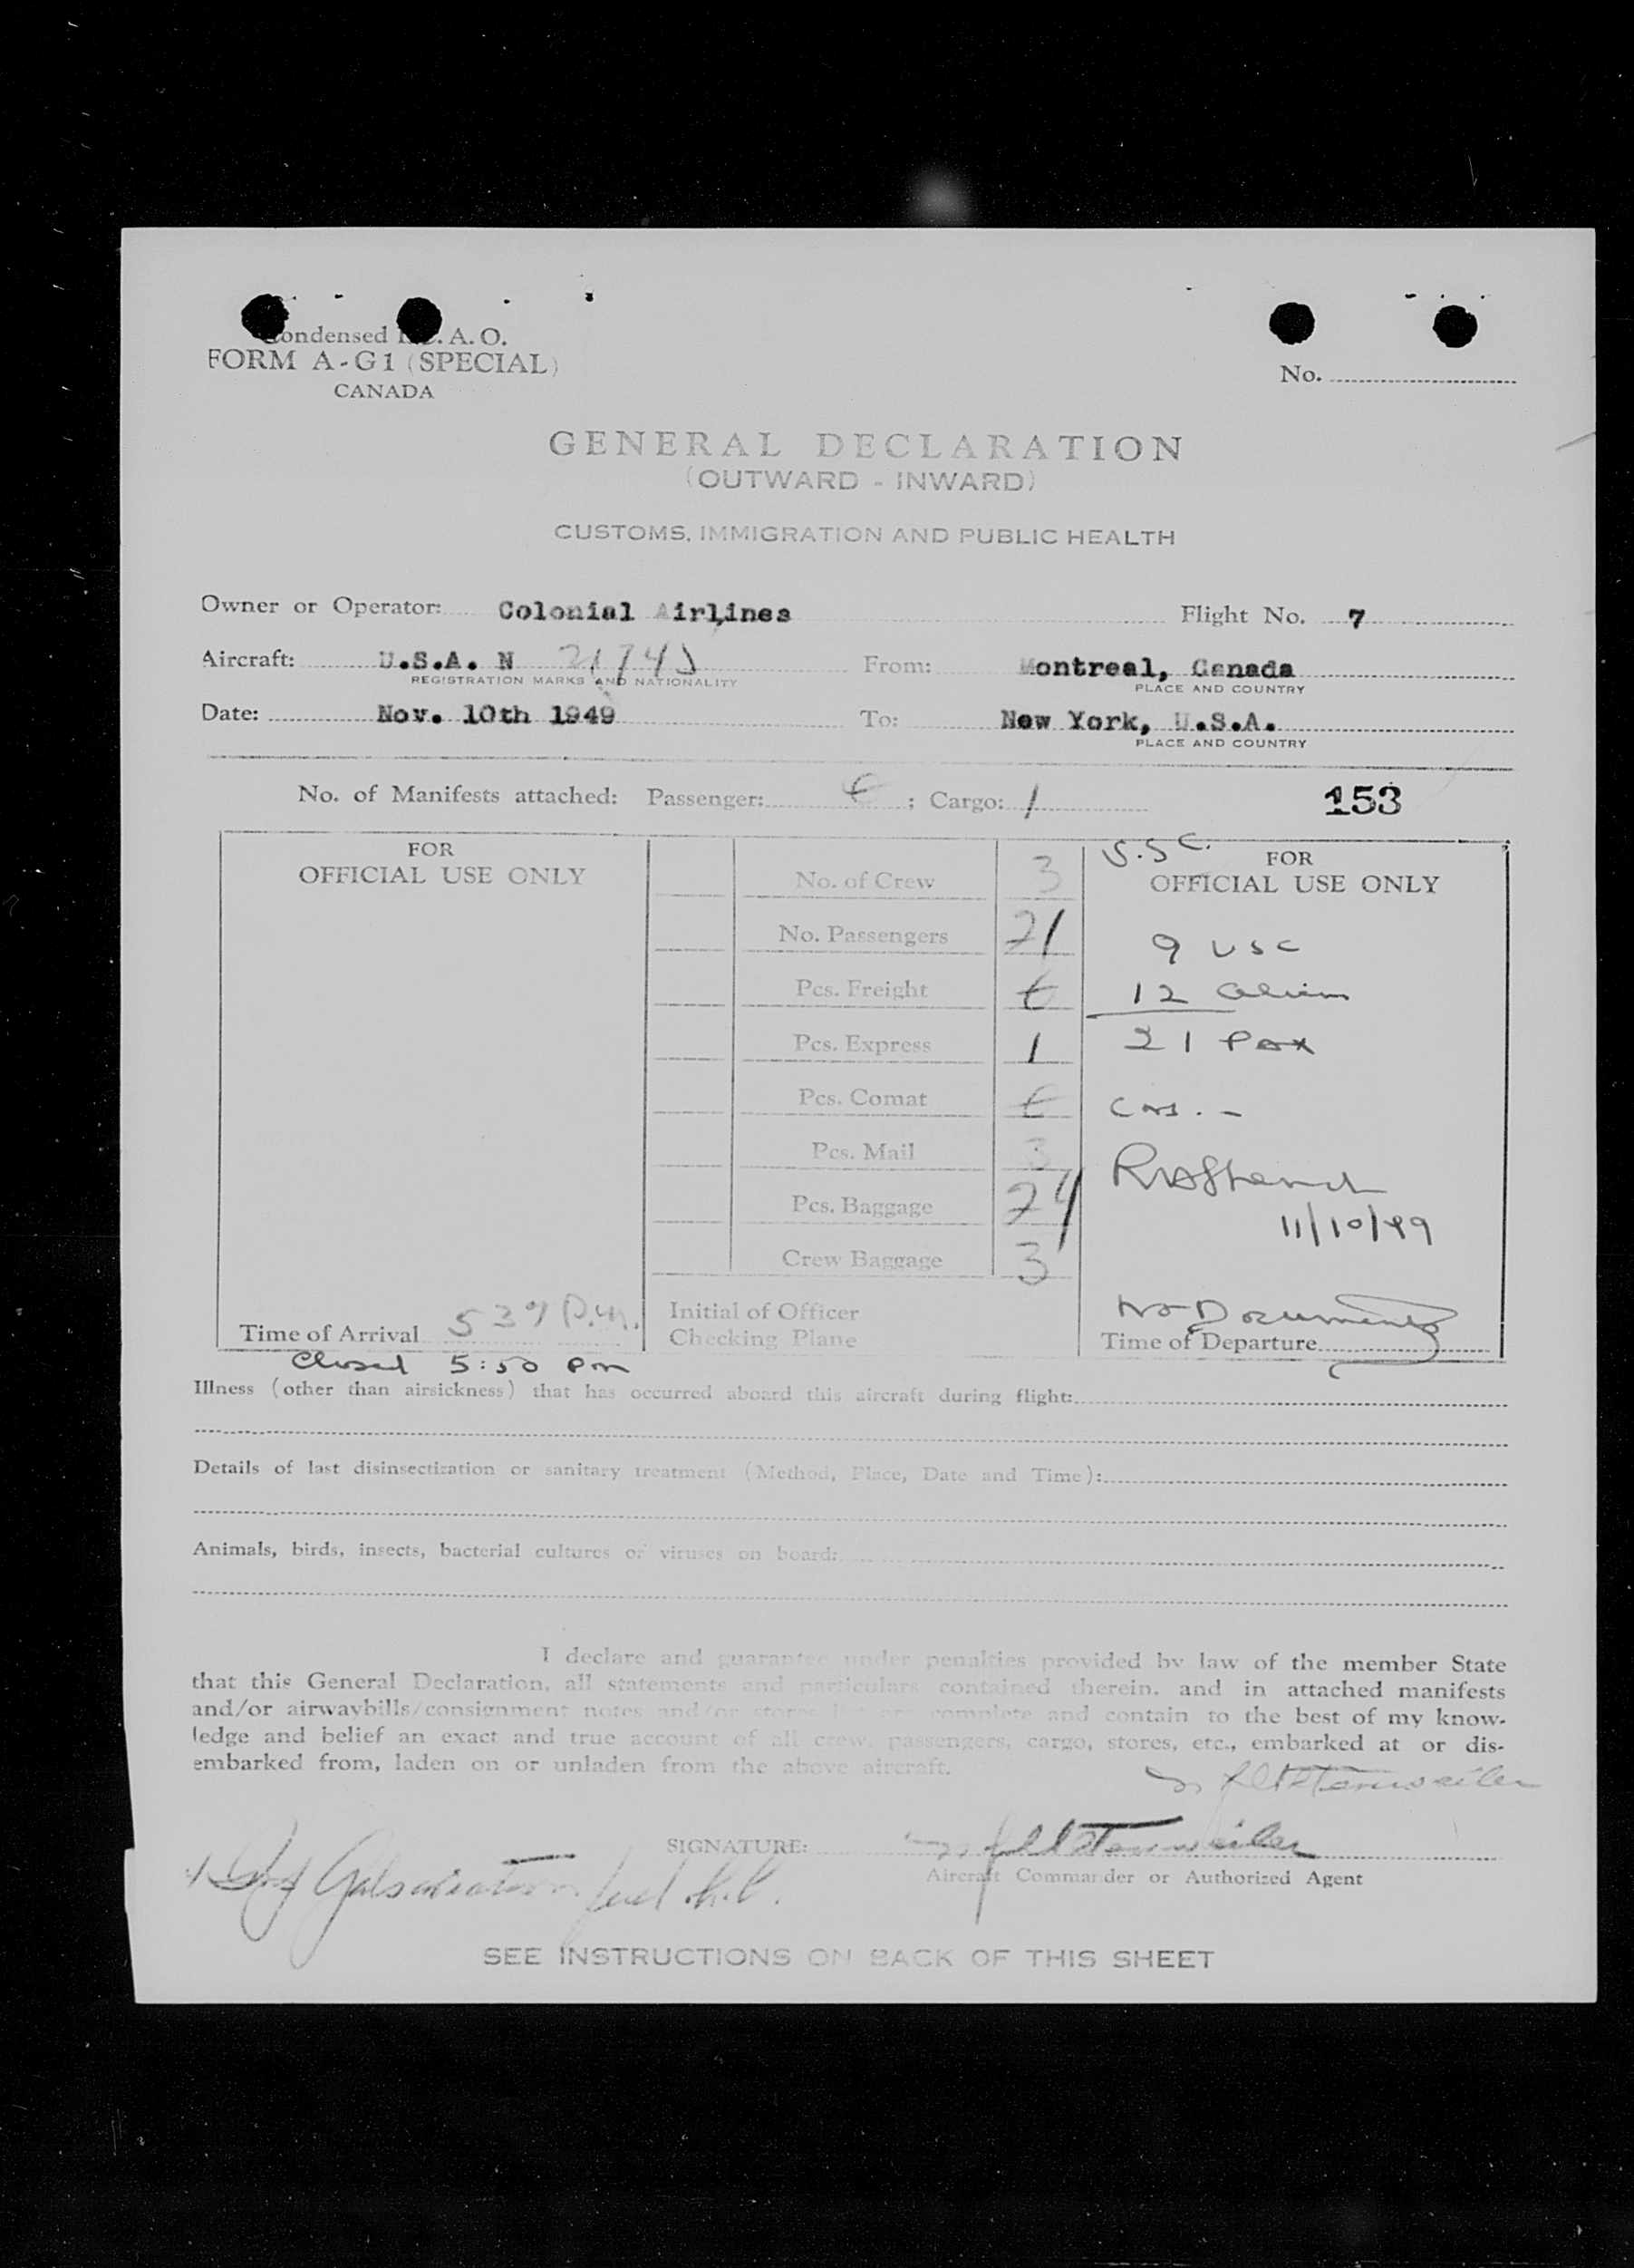 Condensed I.C.A.O.
FORM A-G1 (SPECIAL)
CANADA
No.
GENERAL DECLARATION
(OUTWARD - INWARD)
CUSTOMS, IMMIGRATION AND PUBLIC HEALTH
Owner or Operator: Colonial Airlines Flight No. 7
Aircraft: U.S.A. N 21745 From: Montreal, Canada
REGISTRATION MARKS AND NATIONALITY PLACE AND COUNTRY
Date: Nov. 10th 1949 To: New York, U.S.A.
PLACE AND COUNTRY
No. of Manifests attached: Passenger: ; Cargo: 1 153
FOR
OFFICIAL USE ONLY
No. of Crew 3
No. Passengers 21
Pcs. Freight
Pcs. Express 1
Pcs. Comat
Pcs. Mail 3
Pcs. Baggage 24
Crew Baggage 3
Initial of Officer
Checking Plane
S.S C.
FOR
OFFICIAL USE ONLY
9 USC
12 alien
21 Pax
11/10/49
No Documents
Time of Departure
Time of Arrival 539 P.M.
Closed 5:50 Pm
Illness (other than airsickness) that has occurred aboard this aircraft during flight:
Details of last disinsectization or sanitary treatment (Method, Place, Date and Time):
Animals, birds, insects, bacterial cultures or viruses on board:
I declare and guarantee under penalties provided by law of the member State
that this General Declaration, all statements and particulars contained therein, and in attached manifests
and/or airwaybills/consignment notes and/or stores list are complete and contain to the best of my know-
ledge and belief an exact and true account of all crew, passengers, cargo, stores, etc., embarked at or dis-
embarked from, laden on or unladen from the above aircraft.
SIGNATURE:
Aircraft Commander or Authorized Agent
Gals aviation fuel
SEE INSTRUCTIONS ON BACK OF THIS SHEET